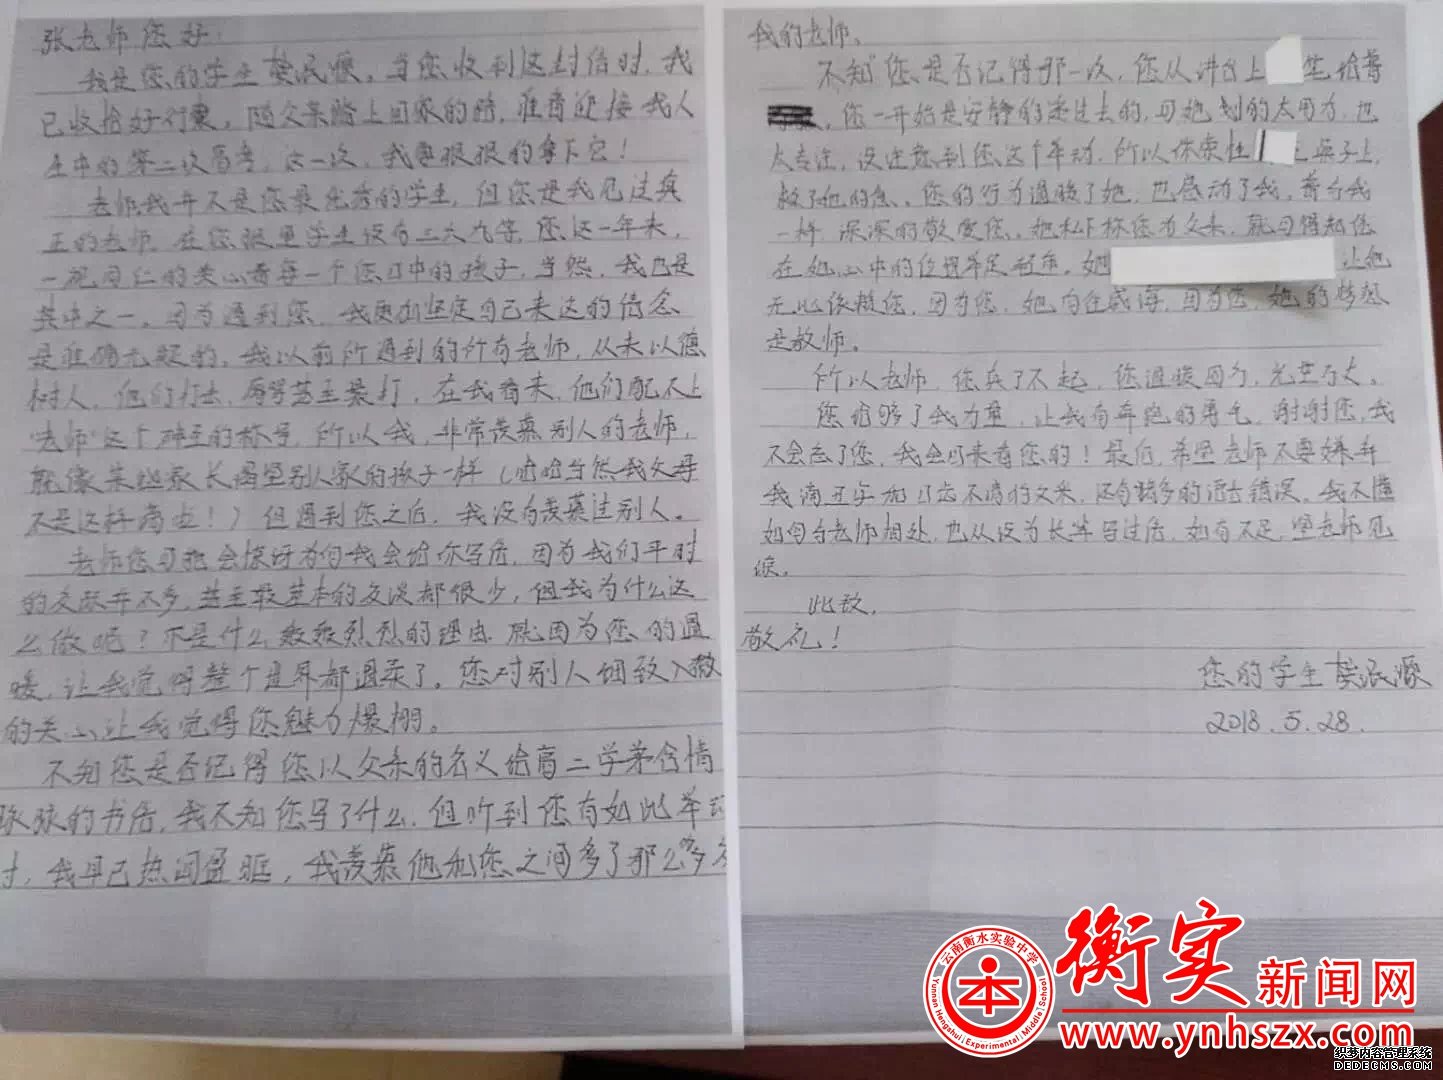 张老师您好:
我是您的学生樊泯源。当您收到这封信时,我
已收拾好行囊,随父亲踏上回家的路,准备迎接我人
生中的第二次高考,这一次,我要狠狠的拿下它!
老师,我并不是您最优秀的学生,但您是我见过真
正的老师,在您眼里学生没有三六九等,您这一年来,
一视同仁的关心着每一个您口中的孩子,当然,我也是
其中之一。因为遇到您,我更加坚定自己未达的信念
是准确无疑的,我以前所遇到的所有老师,从未以德
树人,他们打击,辱骂甚至暴打,在我看来,他们配不上
"老师"这个神圣的称号,所以我,非常羡慕别人的老师,
就像某些家长渴望别人家的孩子一样(哈哈当然我父母
不是这样滴啦!)但遇到您之后,我没有羡慕过别人。
老师您可能会惊讶为何我会给你写信,因为我们平时
的交流并不多,甚至最基本的交谈都很少,但我为什么这
么做呢?不是什么轰轰烈烈的理由,就因为您的温
暖,让我觉得整个世界都温柔了。您对别人细致入微
的关心,让我觉得您魅力爆棚。
不知您是否记得您以父亲的名义给高二学弟含情
脉脉的书信,我不知您写了什么,但听到您有如此举动
时,我早已热泪盈眶,我羡慕他和您之间多了那么多
我的老师,
不知您是否记得那一次,您从讲台上 给
,您一开始是安静的递过去的,可她刻的太用力,也
太专注,没注意到您这个举动,所以你索性 桌子上,
救了她的急,您的行为温暖了她,也感动了我,她和我
一样,深深的敬爱您,她私下称您为父亲,就可得知您
在她心中的位置举足轻重,她 让她
无比依赖您,因为您,她 因为您,她的梦想
是教师。
所以老师,您真了不起,您温暖 ,光芒万丈。
您给够了我力量,让我有奔跑的勇气,谢谢您,我
不会忘了您,我会回来看您的!最后,希望老师不要嫌弃
我满 的文采,还有诸多的语法错误,我不懂
如何与老师相处,也从没为长辈写过信,如有不足,望老师见
谅。
此致,
敬礼!
您的学生樊泯源
2018.5.28.
云南衡水实验中学
Yunnan Hengshui Experimental Middle School
本
衡实新闻网
www.ynhszx.com
织梦内容管理系统
DEDECMS.COM